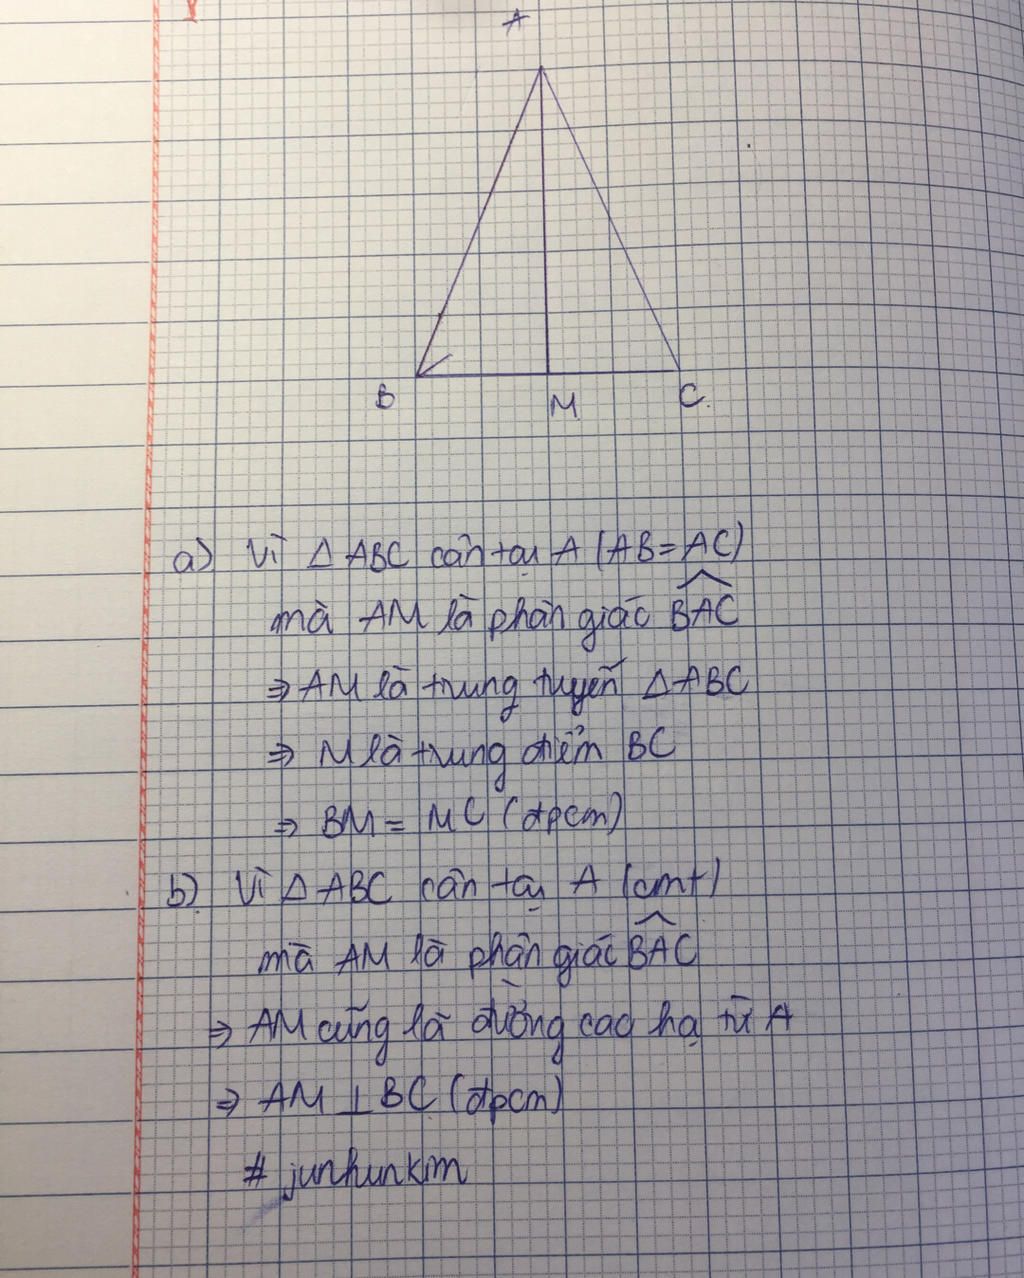 A
B
M
C
a) Vì △ABC cân tại A (AB=AC)
mà AM là phân giác BAC
⇒ AM là trung tuyến △ABC
⇒ M là trung điểm BC
⇒ BM = MC (đpcm)
b) Vì △ABC cân tại A (cmt)
mà AM là phân giác BAC
⇒ AM cũng là đường cao hạ từ A
⇒ AM ⊥ BC (đpcm)
# junhunkim